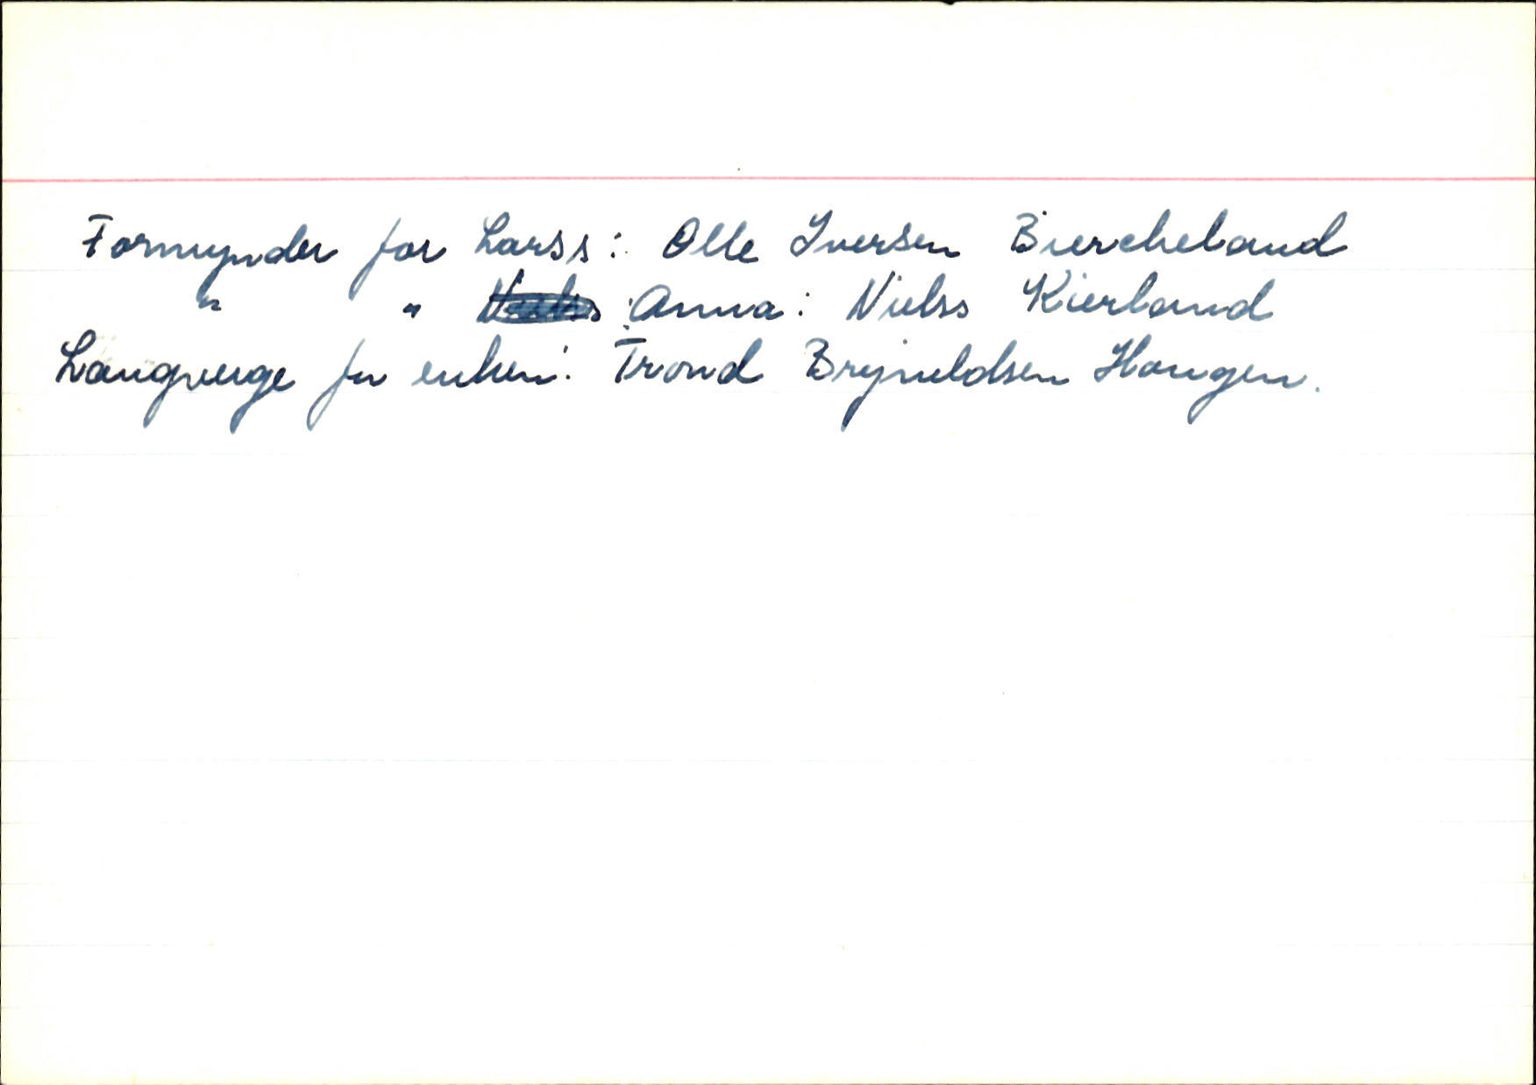 Formynder for Larss: Olle Iversen Biercheland
" " Anna: Nielss Kierland
Laugverge for enken: Trond Brynieldsen Haugen.